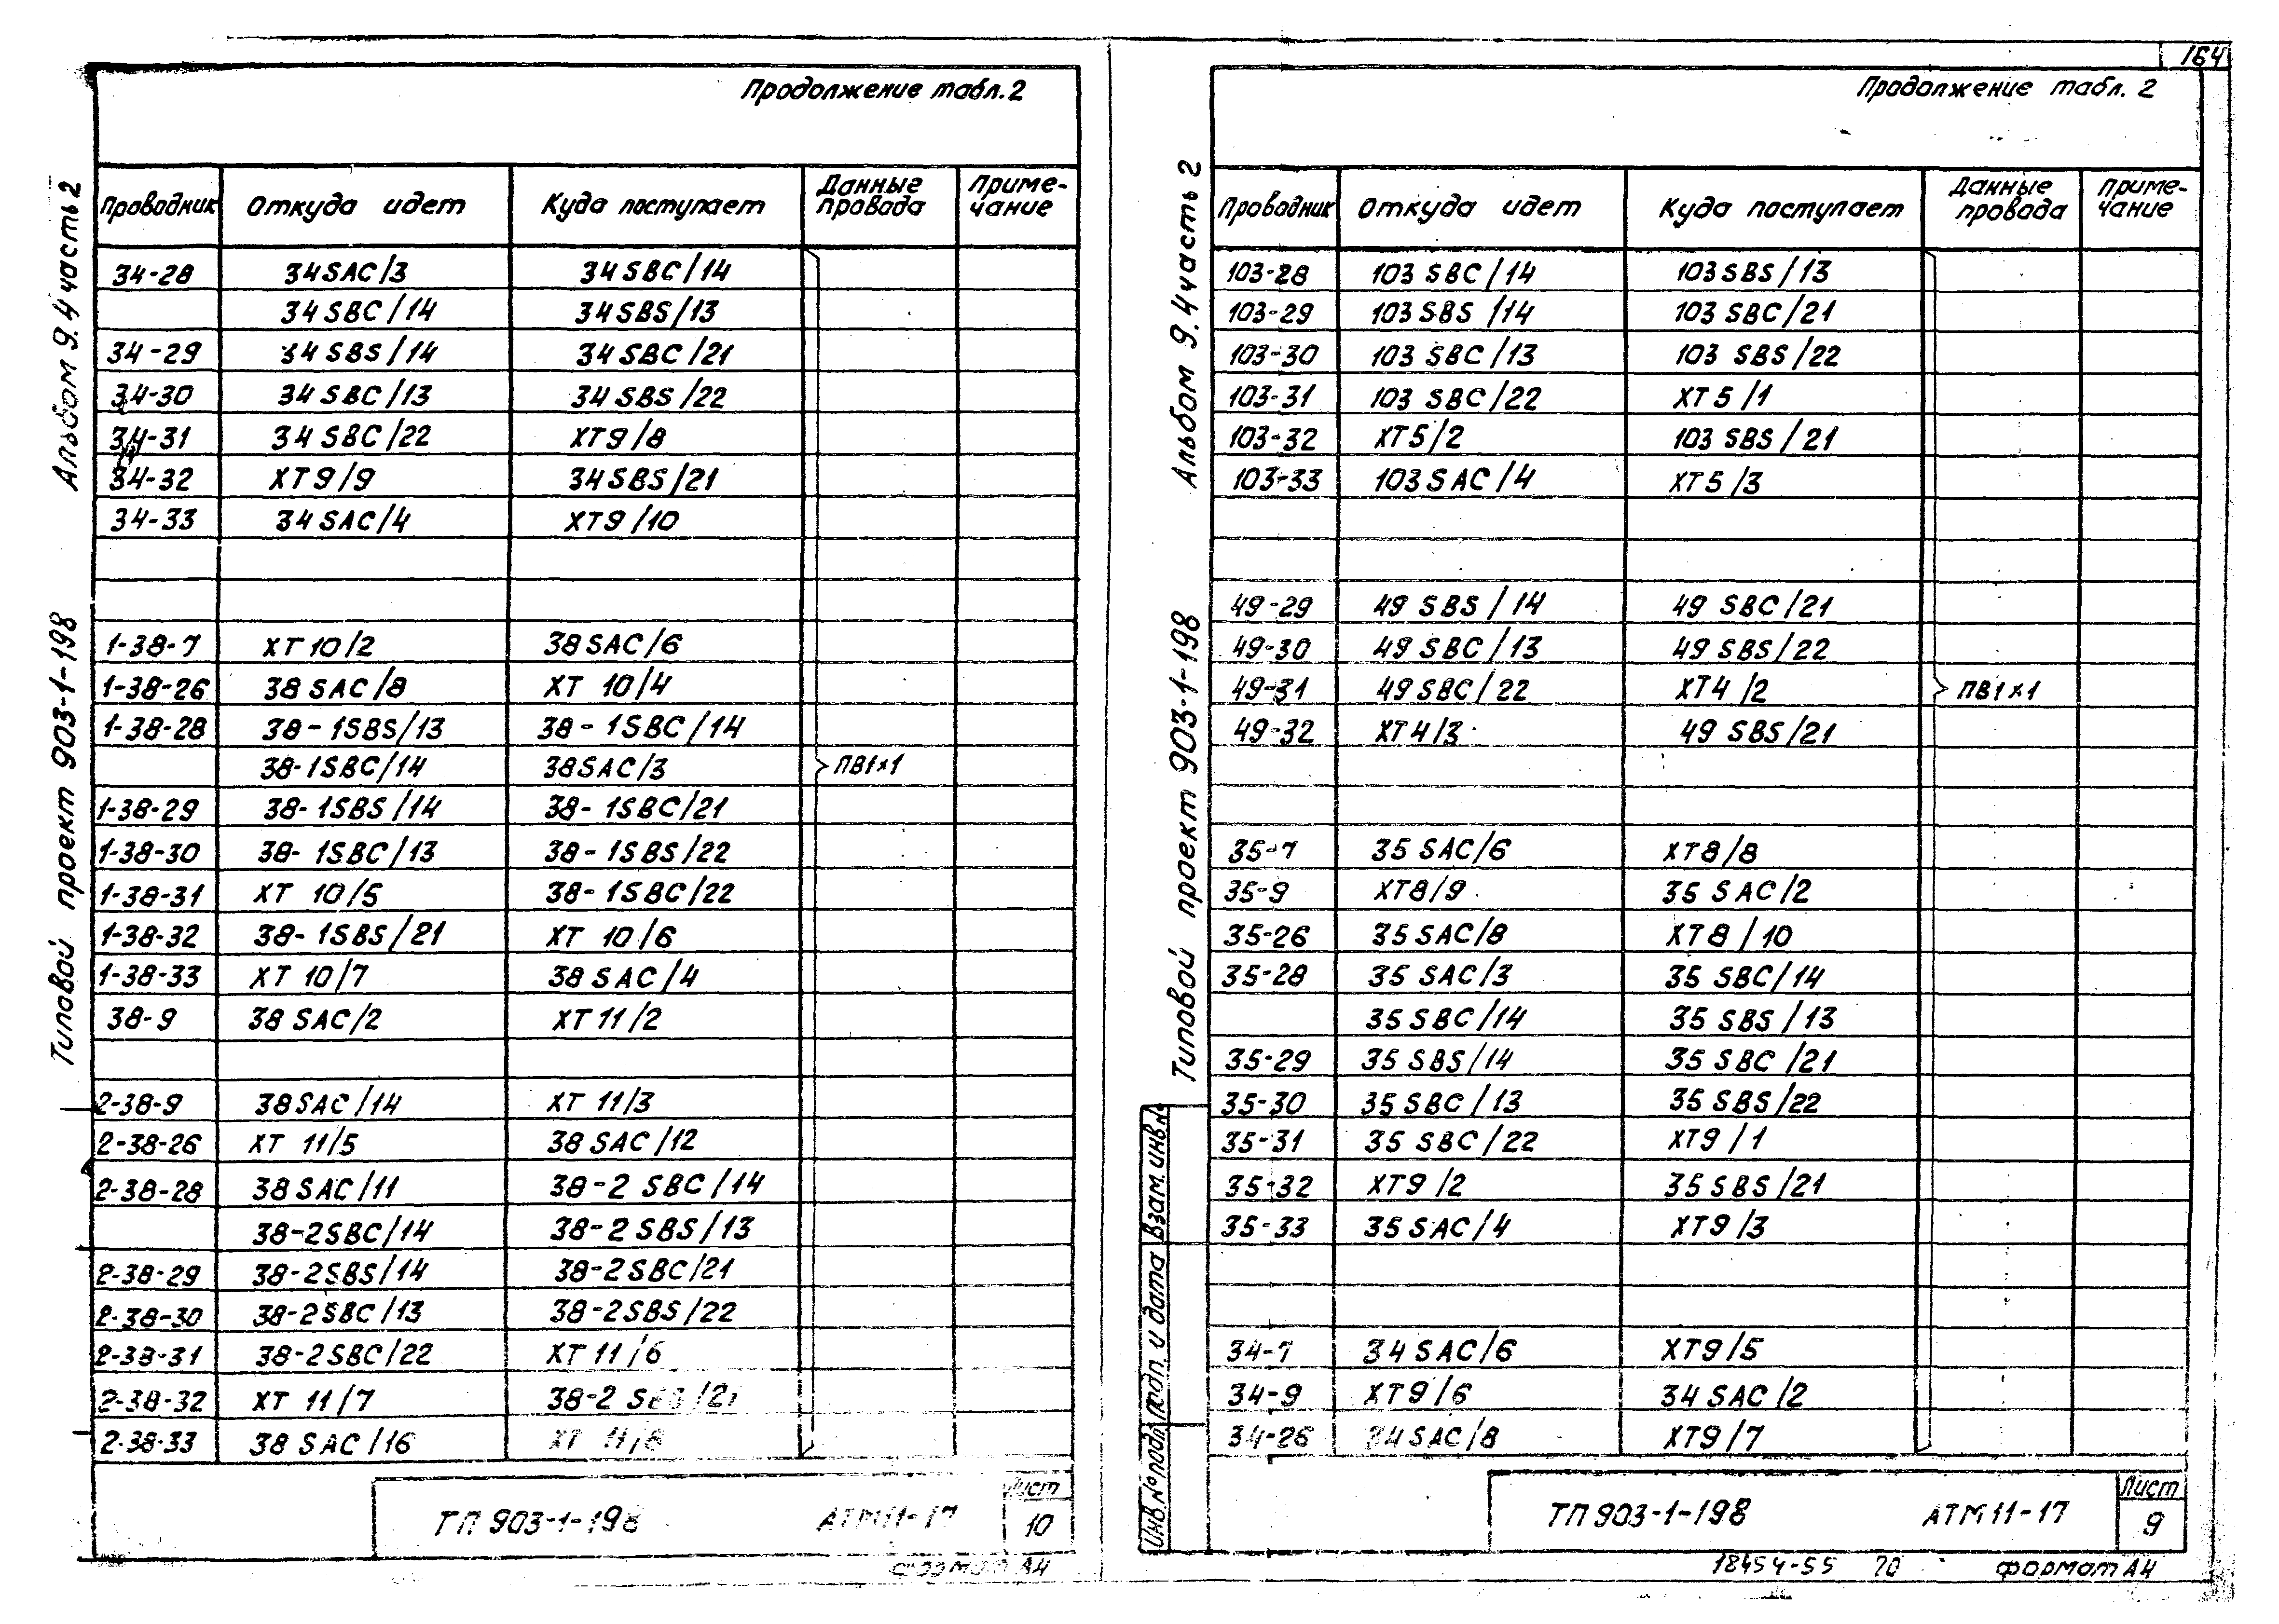 164
Продолжение табл.2
Альбом 9.4 часть 2
Типовой проект 903-1-198
Проводник Откуда идет Куда поступает Данные провода Приме-чание
34-28 34SAC/3 34SBC/14
34SBC/14 34SBS/13
34-29 34SBS/14 34SBC/21
34-30 34SBC/13 34SBS/22
34-31 34SBC/22 XT9/8
34-32 XT9/9 34SBS/21
34-33 34SAC/4 XT9/10
1-38-7 XT10/2 38SAC/6
1-38-26 38SAC/8 XT 10/4
1-38-28 38-1SBS/13 38-1SBC/14
38-1SBC/14 38SAC/3 ПВ1×1
1-38-29 38-1SBS/14 38-1SBC/21
1-38-30 38-1SBC/13 38-1SBS/22
1-38-31 XT 10/5 38-1SBC/22
1-38-32 38-1SBS/21 XT 10/6
1-38-33 XT 10/7 38SAC/4
38-9 38SAC/2 XT11/2
2-38-9 38SAC/14 XT 11/3
2-38-26 XT 11/5 38SAC/12
2-38-28 38SAC/11 38-2SBC/14
38-2SBC/14 38-2SBS/13
2-38-29 38-2SBS/14 38-2SBC/21
2-38-30 38-2SBC/13 38-2SBS/22
2-38-31 38-2SBC/22 XT11/6
2-38-32 XT 11/7 38-2
2-38-33 38SAC/16 XT 11/8
ТП 903-1-198 АТМ11-17 Лист
10
формат А4
Продолжение табл. 2
Альбом 9.4 часть 2
Типовой проект 903-1-198
Инв.№ подл. Подп. и дата Взам. инв.№
Проводник Откуда идет Куда поступает Данные провода Приме-чание
103-28 103SBC/14 103SBS/13
103-29 103SBS/14 103SBC/21
103-30 103SBC/13 103SBS/22
103-31 103SBC/22 XT5/1
103-32 XT5/2 103SBS/21
103-33 103SAC/4 XT5/3
49-29 49SBS/14 49SBC/21
49-30 49SBC/13 49SBS/22
49-31 49SBC/22 XT4/2 ПВ1×1
49-32 XT4/3 49SBS/21
35-7 35SAC/6 XT8/8
35-9 XT8/9 35SAC/2
35-26 35SAC/8 XT8/10
35-28 35SAC/3 35SBC/14
35SBC/14 35SBS/13
35-29 35SBS/14 35SBC/21
35-30 35SBC/13 35SBS/22
35-31 35SBC/22 XT9/1
35-32 XT9/2 35SBS/21
35-33 35SAC/4 XT9/3
34-7 34SAC/6 XT9/5
34-9 XT9/6 34SAC/2
34-26 34SAC/8 XT9/7
ТП 903-1-198 АТМ11-17 Лист
9
18454-55 70 формат А4